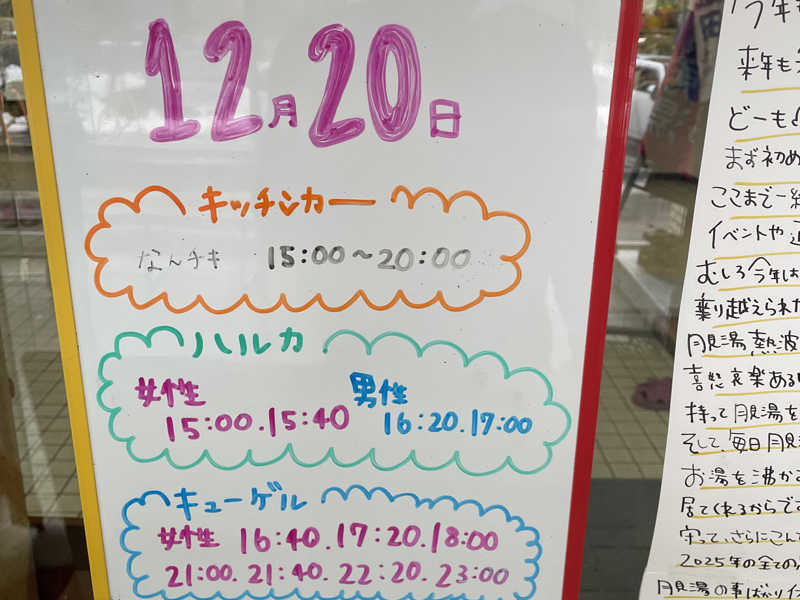 12月20日
キッチンカー
なんチキ 15:00〜20:00
ハルカ
女性 男性
15:00.15:40 16:20.17:00
キューゲル
女性 16:40.17:20.18:00
21:00.21:40.22:20.23:00
今年も
来年も
どーも
まず初め
ここまで一緒
イベントや
むしろ今年は
乗り越えられた
月見湯熱波
喜怒哀楽ある
持って月見湯を
そして、毎日月見
お湯を沸か
居てくれるからで
守って、さらにこん
2025年の全ての
月見湯の事ばかり